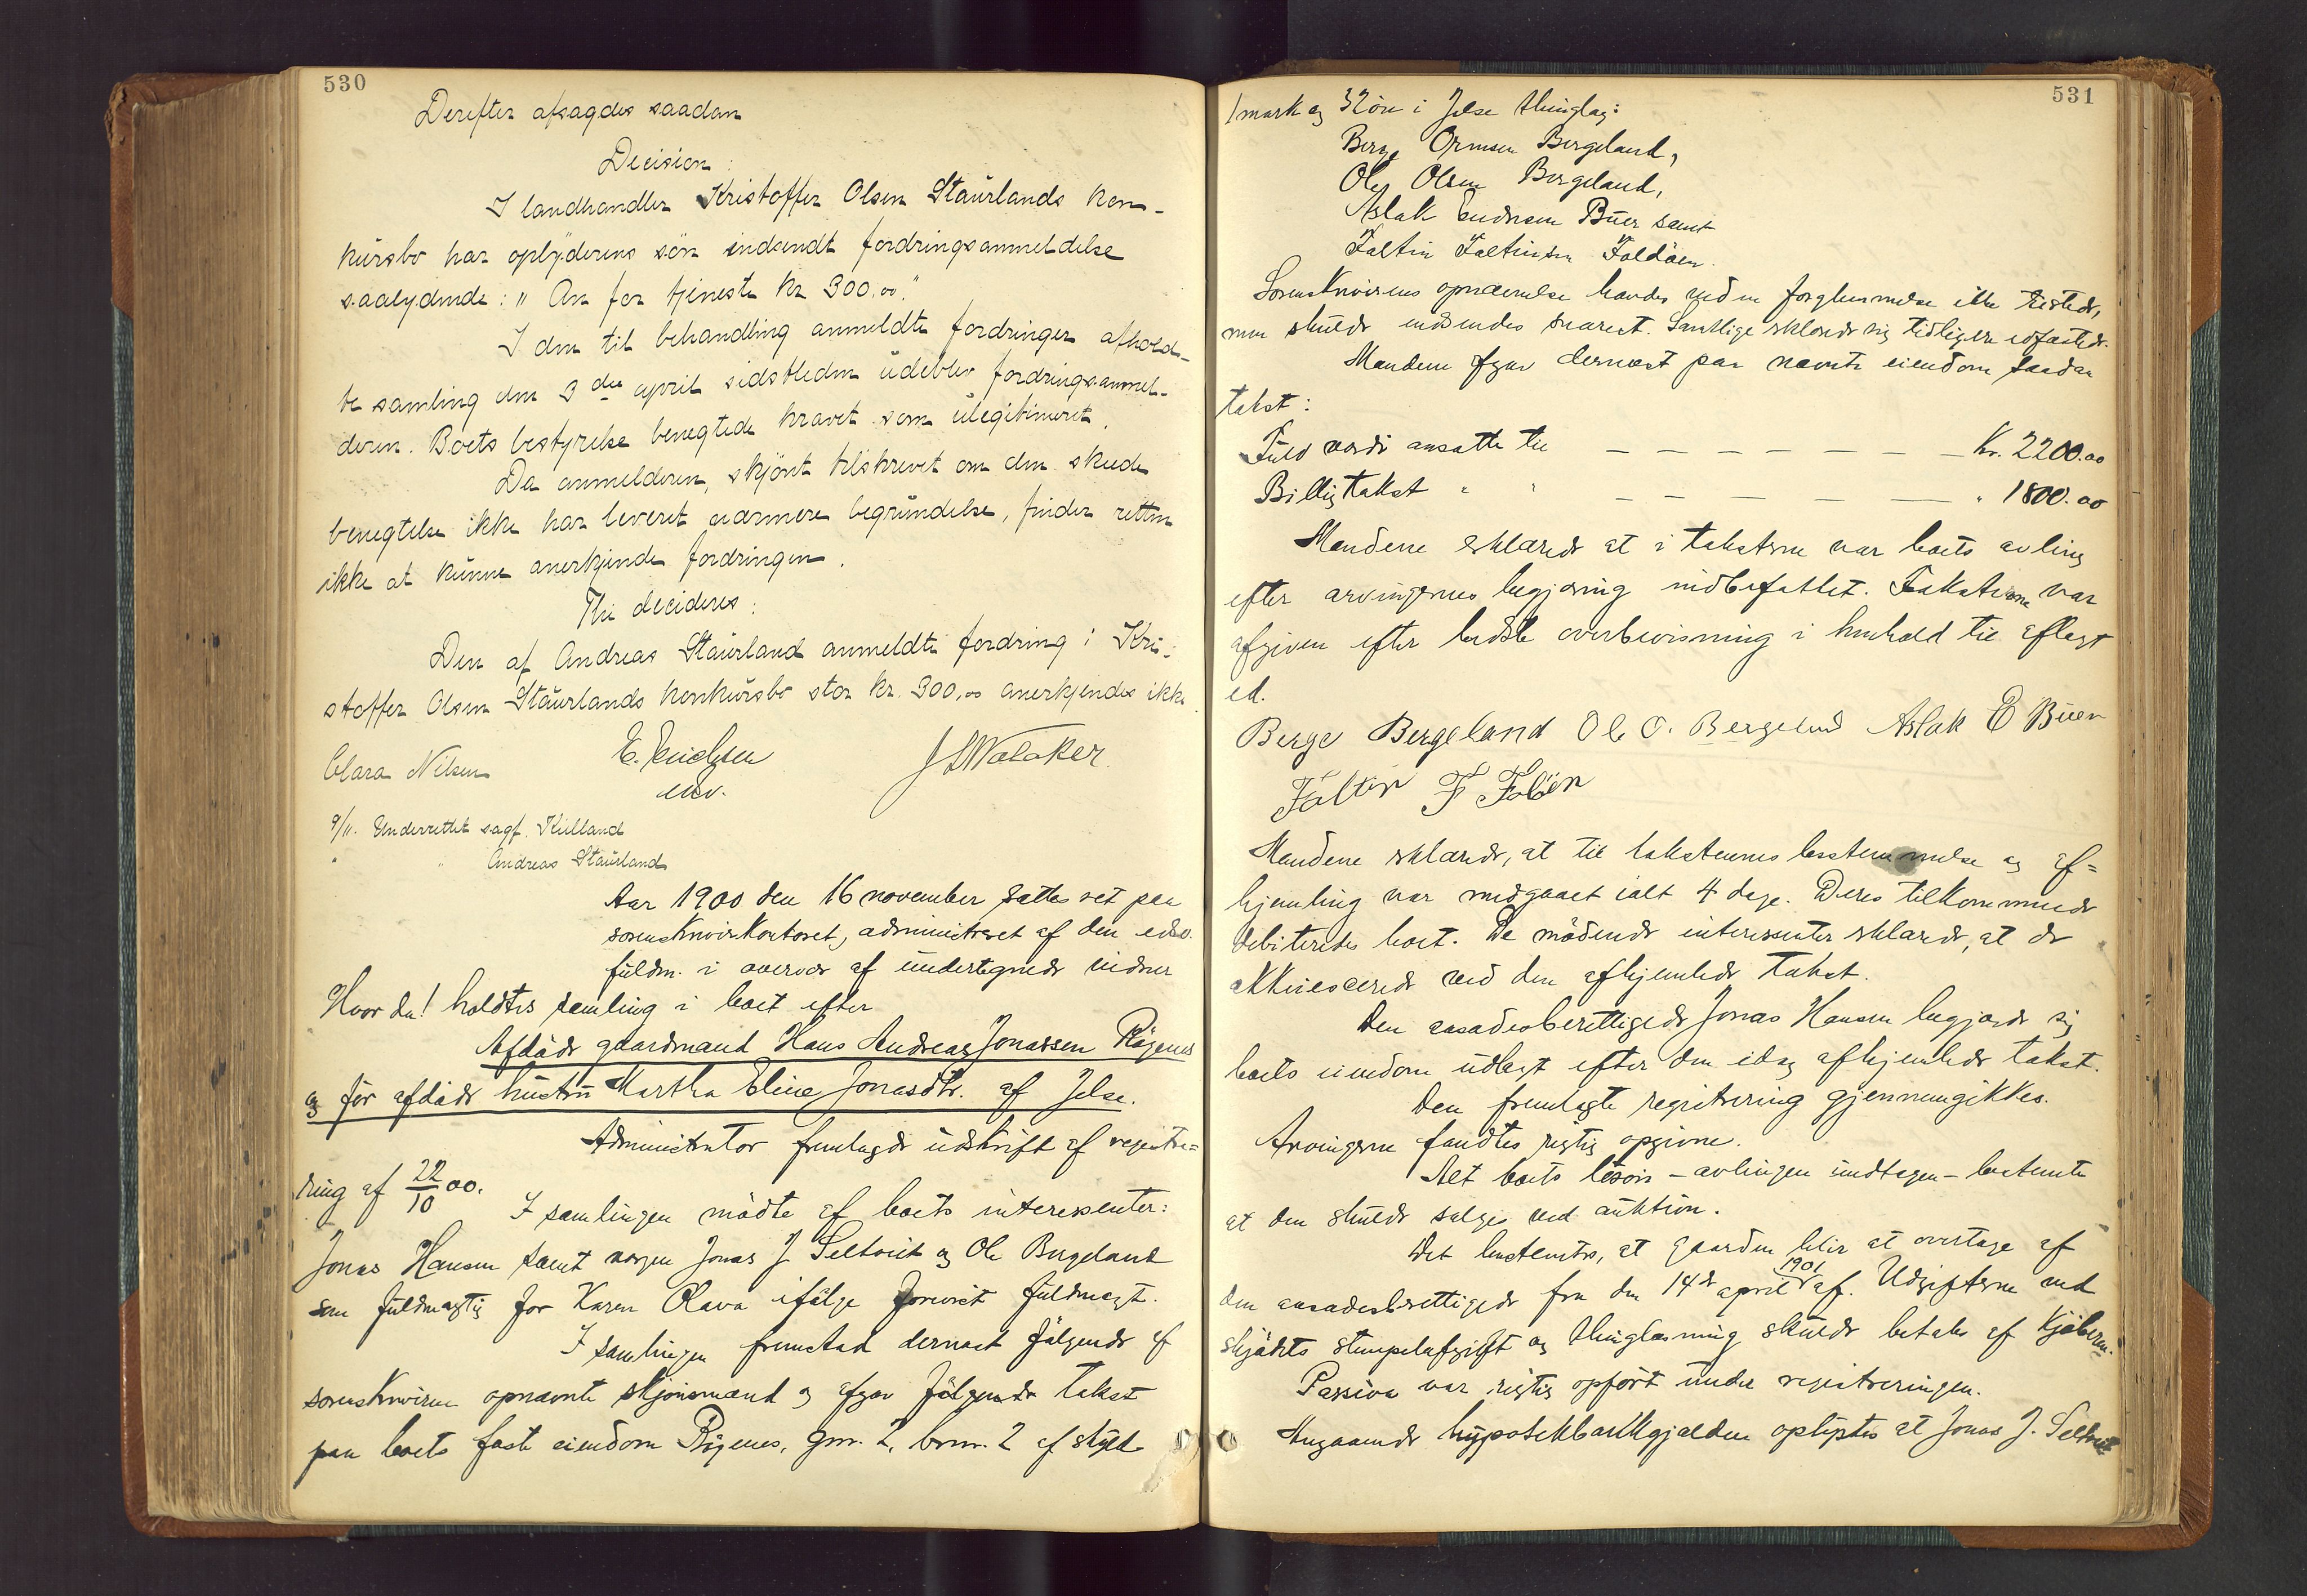 530
Derefter afsagdes saadan
Decision:
I landhandler Kristoffer Olsen Staurlands kon-
kursbo har oplyderens sön indsendt fordringsanmeldelse
saalydende: "An for tjeneste kr 300,00."
I den til behandling anmeldte fordringer afhold-
te samling den 3die april sidstleden udeblev fordringsanmel-
deren. Boets bestyrelse benegtede kravet som ulegitimeret.
Da anmelderen, skjönt tilskrevet om den skede
benegtelse ikke har leveret nærmere begrundelse, finder retten
ikke at kunne anerkjende fordringen.
Thi decideres:
Den af Andreas Staurland anmeldte fordring i Kri-
stoffer Olsen Staurlands konkursbo stor kr. 300,00 anerkjendes ikke.
Clara Nilsen E. Erichsen J L Walaker.
edsv.
9/11. Underrettet sagf. Kielland
" " Andreas Staurland
Aar 1900 den 16 november sattes ret paa
sorenskriverkontoret, administreret af den edsv.
fuldm. i overvær af undertegnede vidner
Hvor da! holdtes samling i boet efter
Afdöde gaardmand Hans Andreas Jonassen Rögenes
og för afdöde hustru Martha Eline Jonasdtr. af Jelse.
Administrator fremlagde udskrift af registre-
ring af 22/10 00.
I samlingen mödte af boets interessenter:
Jonas Hansen samt vergen Jonas J Seltveit og Ole Bergeland
som fuldmægtig for Karen Olava ifölge forevist fuldmagt.
I samlingen fremstod dernæst fölgende af
sorenskriveren opnævnte skjönsmænd og afgav fölgende takst
paa boets faste eiendom Rögenes, gnr. 2, brnr. 2 af skyld
531
1 mark og 32 öre i Jelse thinglag:
Berge Ormsen Bergeland,
Ole Olsen Bergeland,
Aslak Endresen Buer samt
Faltin Faltinsen Foldöen.
Sorenskriverens opnævnelse havdes ved en forglemmelse ikke tilstede,
men skulde indsendes snarest. Samtlige erklærede sig tidligere edfæstede.
Mændene afgav dernæst paa nævnte eiendom saadan
takst:
Fuld værdi ansatte til — — — — — — — Kr. 2200.00
Billig takst " " — — — — — " 1800.00
Mændene erklærede at i taksterne var boets avling
efter arvingernes begjæring indbefattet. Taksterne var
afgiven efter bedste overbevisning i henhold til aflagt
ed.
Berge Bergeland Ole O. Bergeland Aslak E Buer
Falten F Folöen
Mændene erklærede, at til taksternes bestemmelse og af-
hjemling var medgaaet ialt 4 dage. Deres tilkommende
debiteredes boet. De mödende interessenter erklærede, at de
akkviescerede ved den afhjemlede takst.
Den aasædesberettigede Jonas Hansen begjærede sig
boets eiendom udlagt efter den idag afhjemlede takst.
Den fremlagte registrering gjennemgikkes.
Arvingerne fandtes rigtig opgivne.
Alt boets lösöre – avlingen undtagen – bestemte
at den skulde sælges ved auktion.
Det bestemtes, at gaarden blir at overtage af
den aasædesberettigede fra den 14de april 1901 af. Udgifterne ved
skjödets stempelafgift og thinglæsning skulde betales af kjöberen.
Passiva var rigtig opfört under registreringen.
Angaaende hypothekbankgjælden oplystes at Jonas J. Seltveit